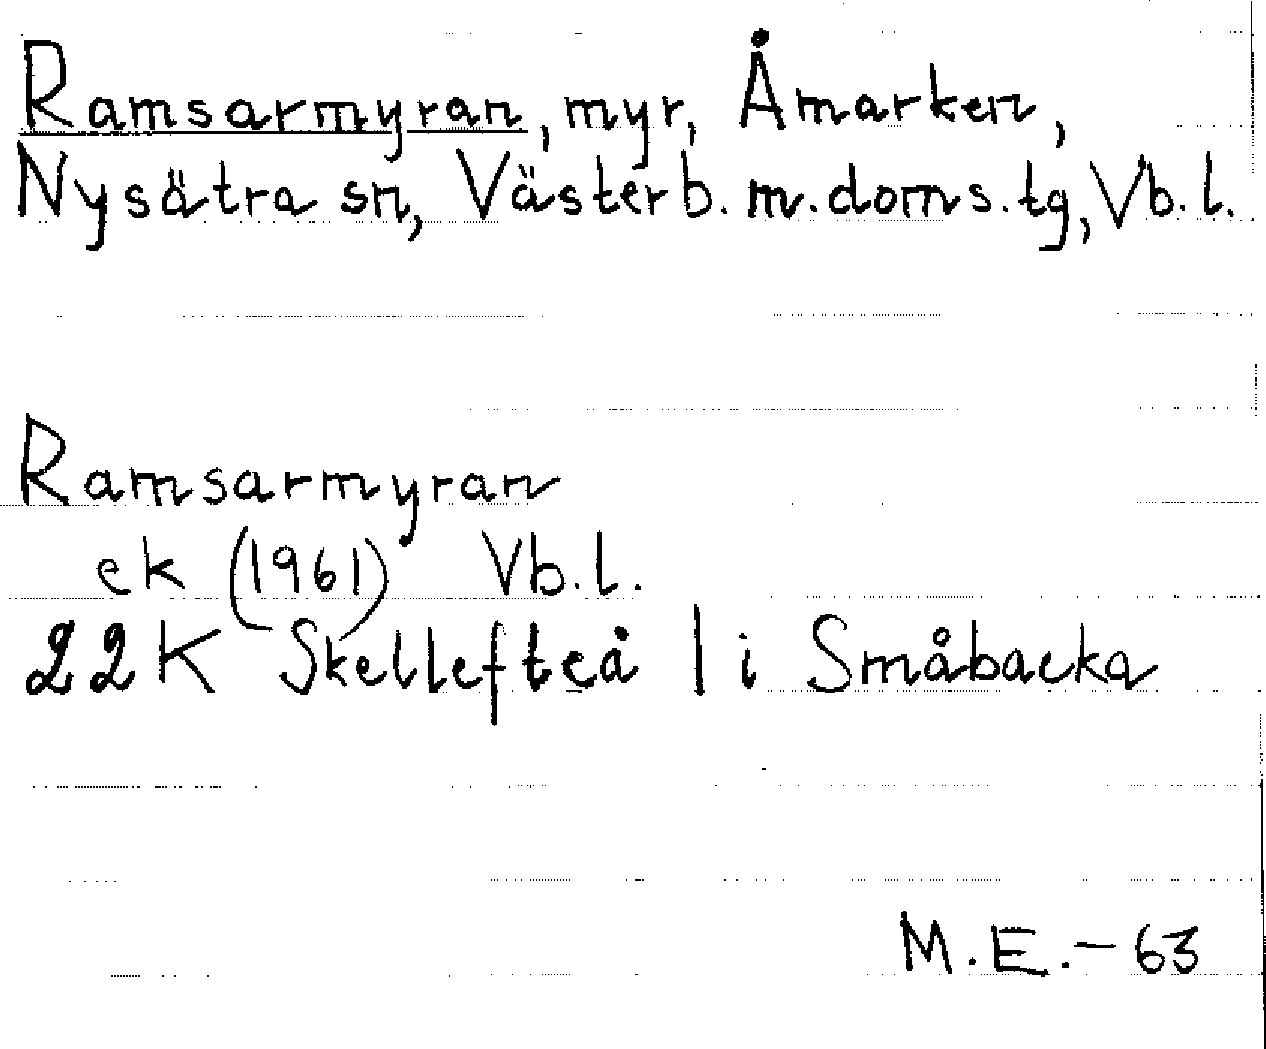 Ramsarmyran, myr, Åmarken,
Nysätra sn, Västerb. m. doms. tg, Vb. l.
Ramsarmyran
ek (1961) Vb. l.
22K Skellefteå l i Småbacka
M. E. - 63